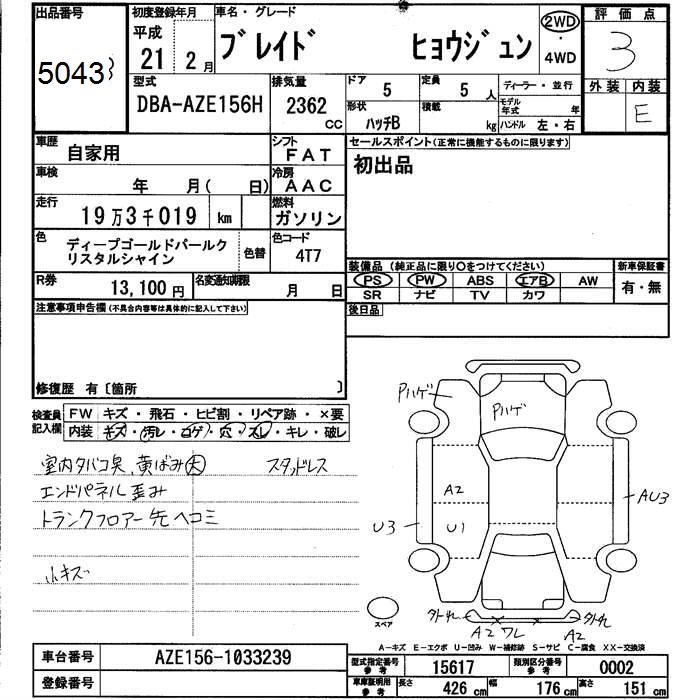 出品番号 初度登録年月 車名・グレード 評価点
5043
平成 21年 2月 ブレイド ヒョウジュン 2WD・4WD 3
型式 排気量 ドア 定員 ディーラー・並行 外装 内装
DBA-AZE156H 2362 cc 5 5人 モデル年式 年 E
形状 積載
ハッチB kg ハンドル 左・右
車歴 自家用 シフト FAT セールスポイント(正常に機能するものに限ります)
車検 年 月( 日) 冷房 AAC 初出品
走行 19万3千019 km 燃料 ガソリン
色 ディープゴールドパールク 色替 色コード
リスタルシャイン 4T7
装備品(純正品に限り○をつけてください) 新車保証書
R券 13,100円 名変通知期限 月 日 PS PW ABS エアB AW 有・無
SR ナビ TV カワ
注意事項申告欄(不具合内容等は具体的に記入して下さい) 後日品
修復歴 有〔箇所 〕
検査員記入欄 FW キズ・飛石・ヒビ割・リペア跡・×要
内装 キズ・汚レ・コゲ・穴・スレ・キレ・破レ
室内タバコ臭、黄ばみ大 スタッドレス
エンドパネル歪み
トランクフロアー先ヘコミ
小キズ
Pハゲ
Pハゲ
A2
AU3
U3 U1
スペア
外れ 外れ
A2 ワレ A2
A-キズ E-エクボ U-凹み W-補修跡 S-サビ C-腐食 XX-交換済
車台番号 AZE156-1033239 型式指定番号 参考 15617 類別区分番号 参考 0002
登録番号 車庫証明用 参考 長さ 426 cm 幅 176 cm 高さ 151 cm